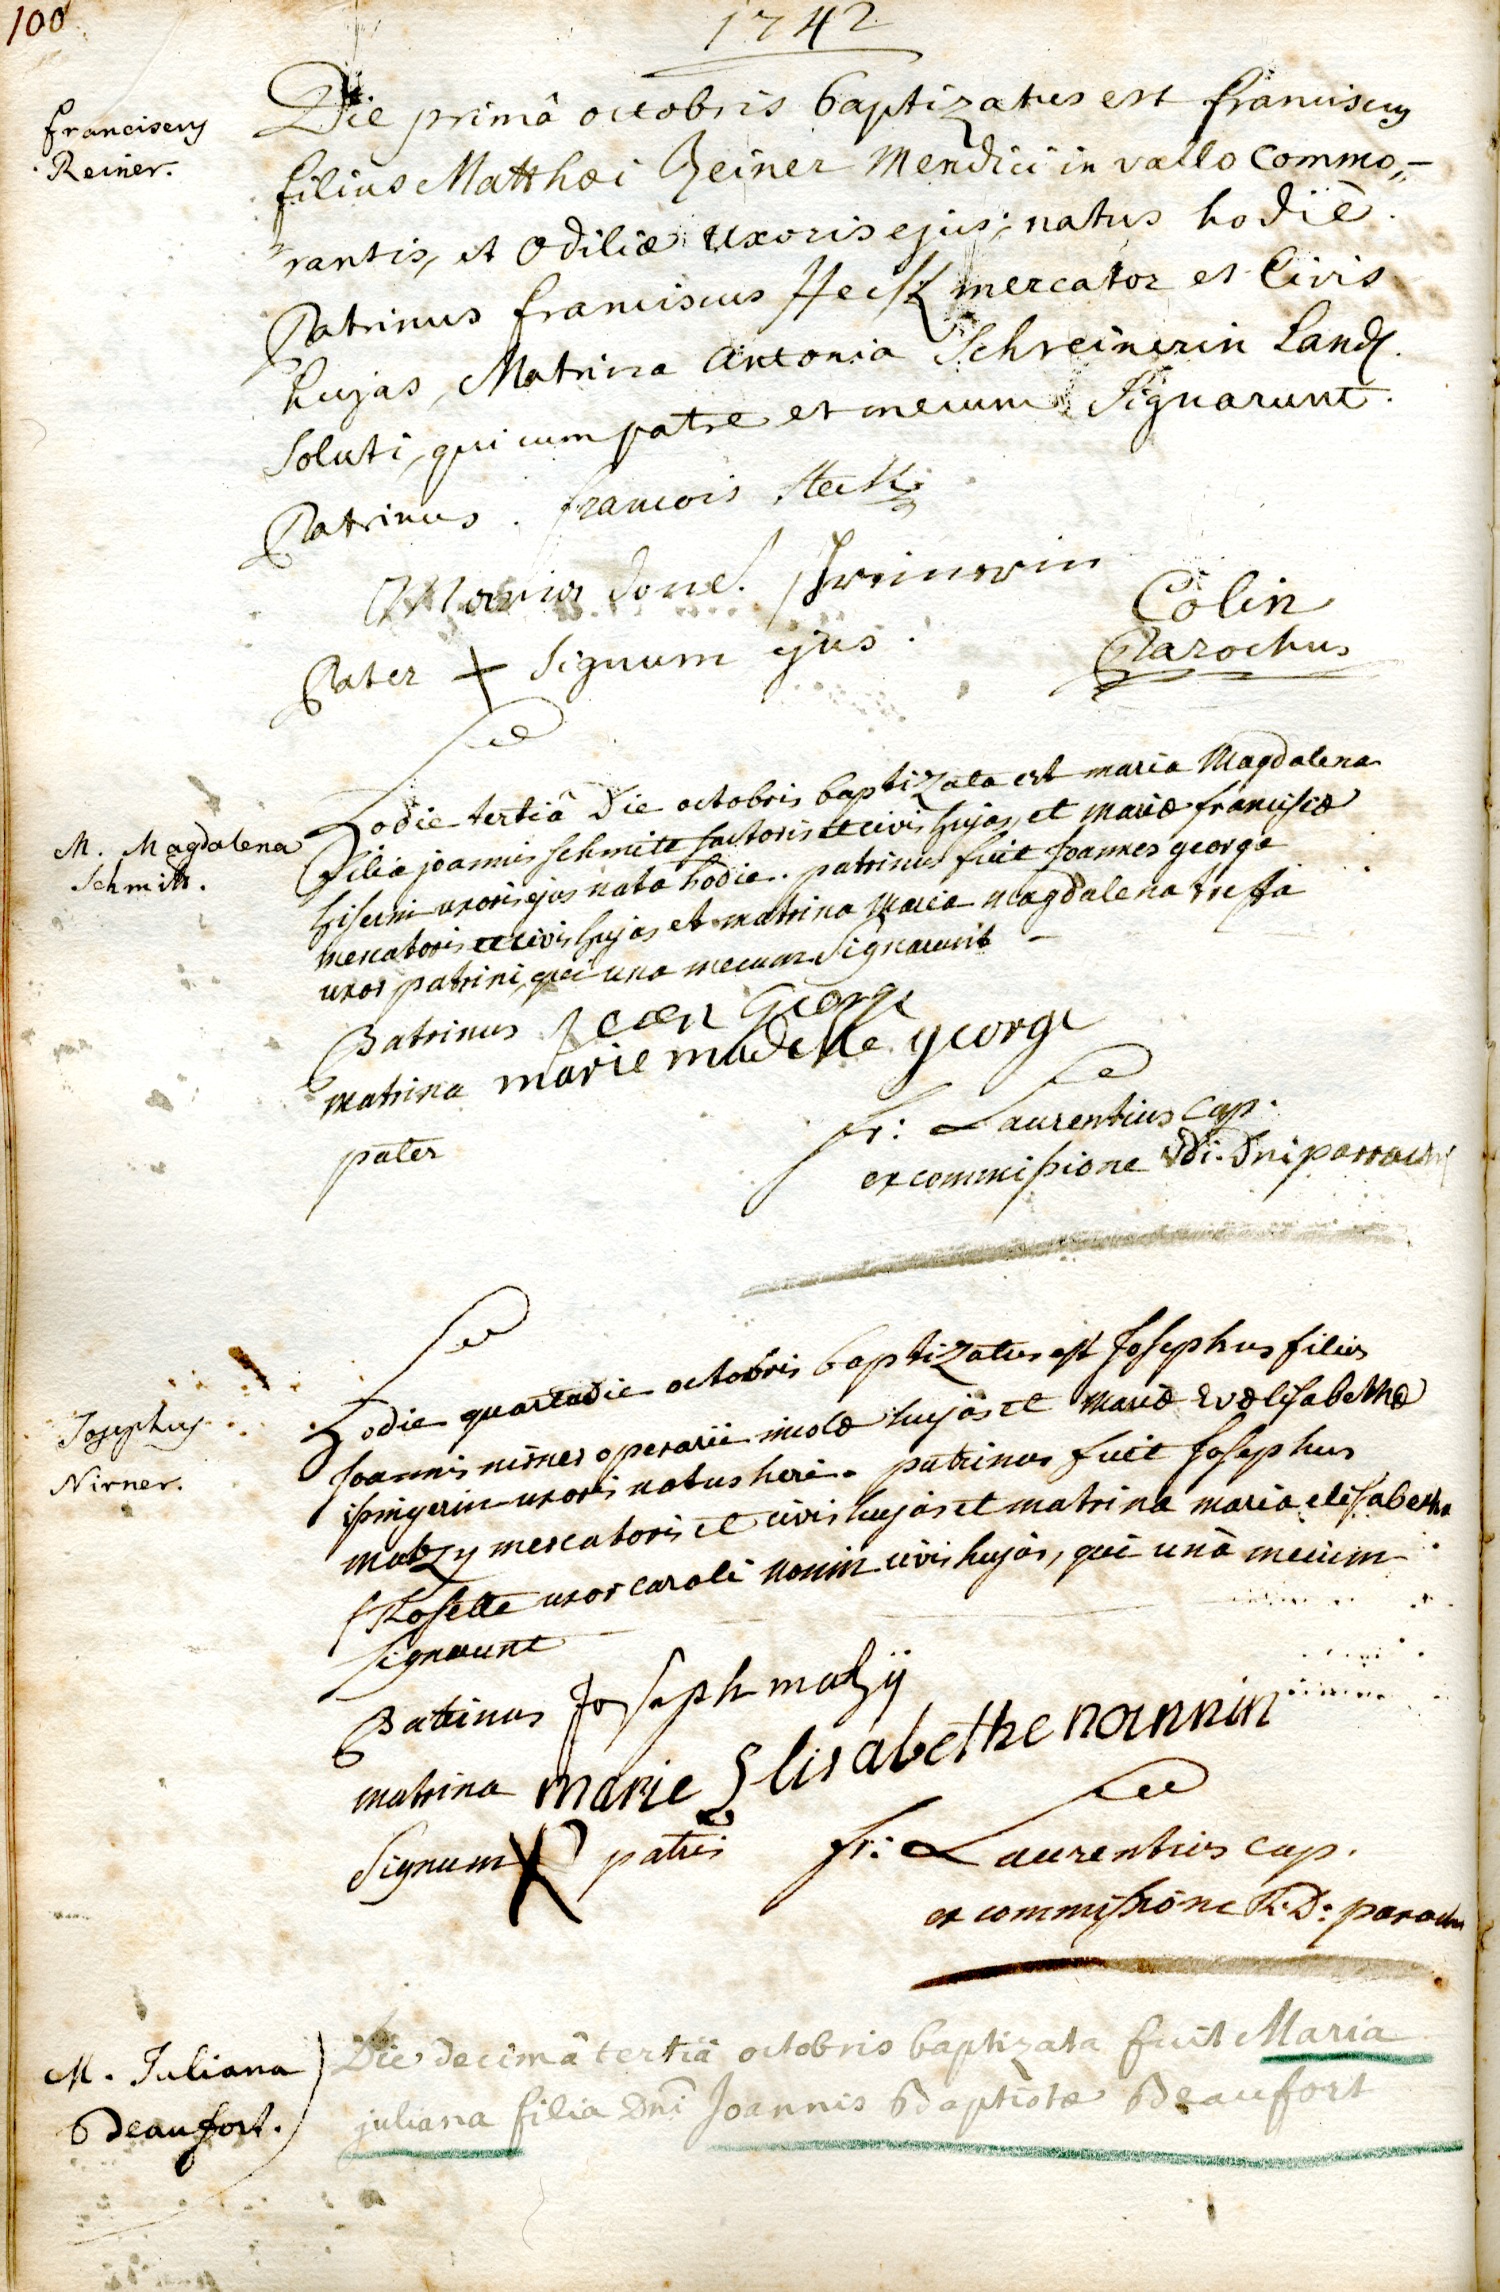 100
1742
Franciscus
Reiner.
Die primâ octobris baptizatus est franciscus
filius Matthæi Reiner Mendici in vallo Commo,,-
rantis, et Odiliæ uxoris ejus; natus hodiè.
Patrinus franciscus Heck mercator et Civis
hujas, Matrina Antonia Schreinerin Land.
Soluti, qui cum patre et mecum Signarunt.
Patrinus. francois Heck
Maria
Pater + Signum ejus.
Colin
Parochus
M. Magdalena
Schmitt.
Hodie tertiâ Die octobris baptizata est maria Magdalena
filia joannis schmitt et civis hujas, et mariæ franciscæ
uxoris ejus nata hodie. patrinus fuit Joannes george
mercatoris et civis hujas et matrina Maria magdalena
uxor patrini, qui una mecum Signarunt
Patrinus Jean George
matrina marie madelle george
pater
fr: Laurentius Cap.
ex commissione Rdi. Dni parrochi
Josephus
Nirner.
Hodie quarta die octobris baptizatus est Josephus filius
Joannis nirner operarii incolæ hujas et Mariæ Evælisabethæ
uxoris natus heri. patrinus fuit Josephus
matzy mercatoris et civis hujas et matrina maria elisabetha
Rosette uxor caroli nonin civis hujas, qui unà mecum
signarunt
Patrinus Joseph matzy
matrina marie Elisabethe nannin
Signum X patris
fr: Laurentius cap.
ex commissione R. D: parochi
M. Juliana
Beaufort.
Die decimâ tertiâ octobris baptizata fuit Maria
juliana filia Dni Joannis Baptistæ Beaufort